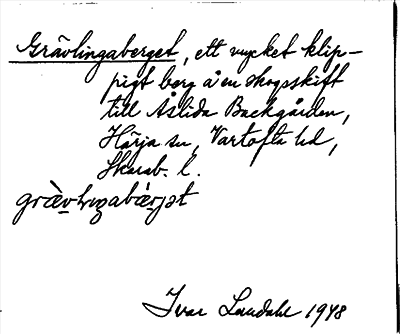 Grävlingaberget, ett mycket klip-
pigt berg å en skogsskift
till Åslida Backgården,
Härja sn, Vartofta hd,
Skarab. l.
Ivar Lundahl 1948